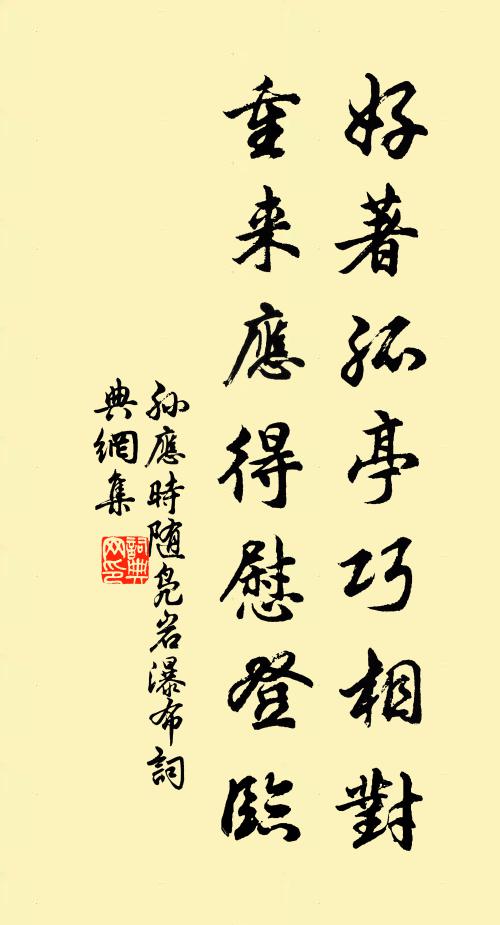 好著孤亭巧相對
重来應得慰登臨
孙應時随凫岩瀑布詞
典網集
詞典
网印